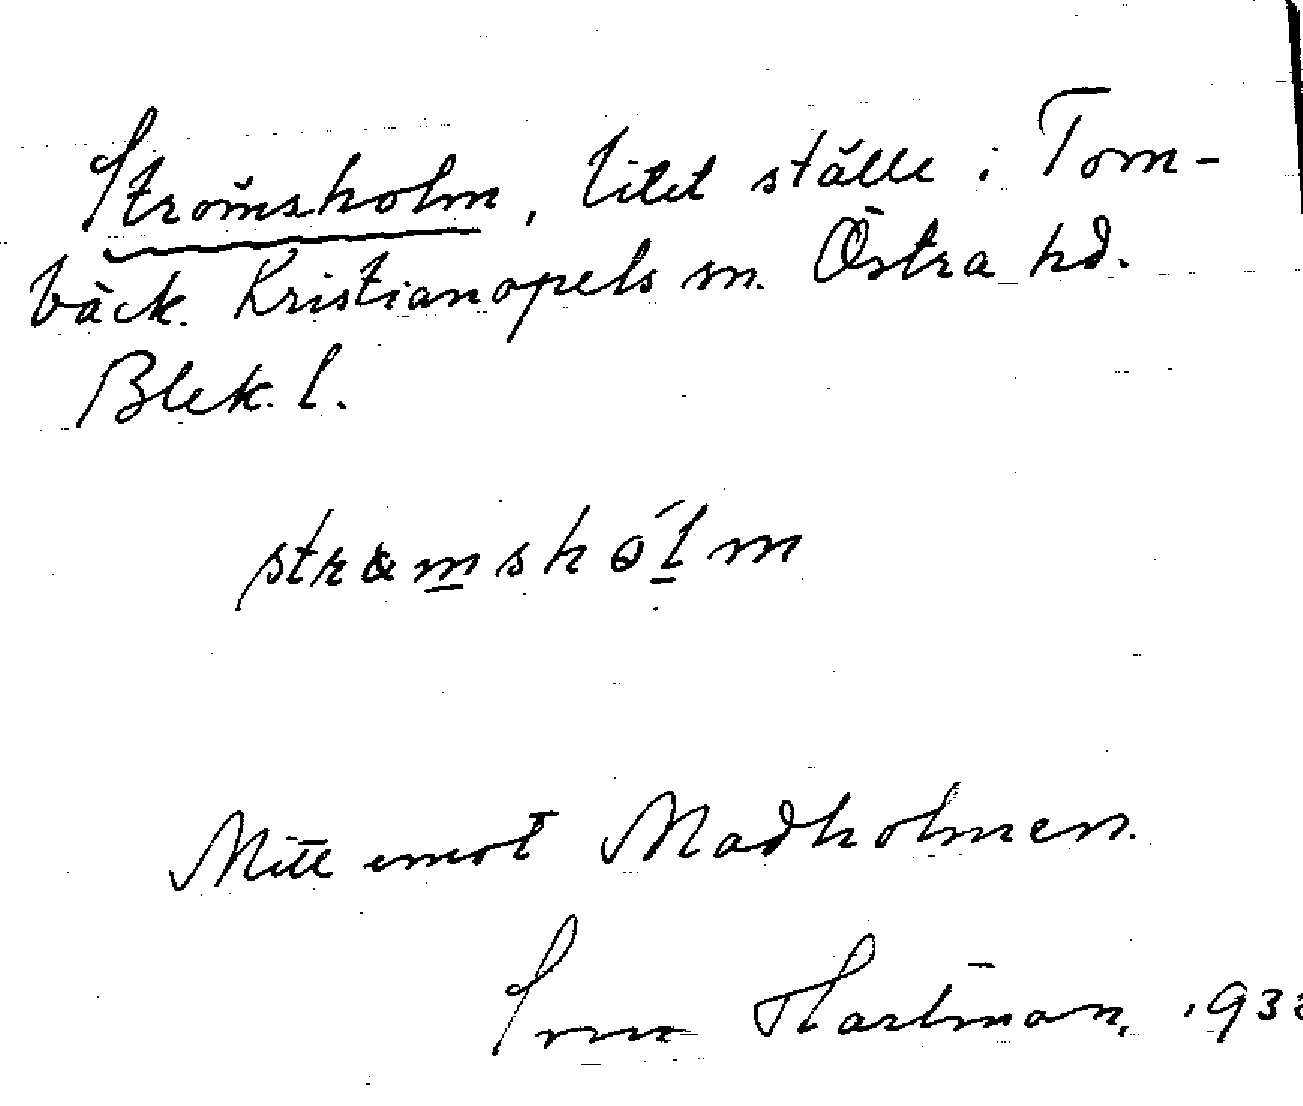 Strömsholm, litet ställe i Tom-
bäck. Kristianopels sn. Östra hd.
Blek. l.
Mitt emot Madholmen.
Hartman,